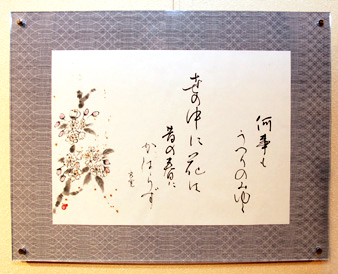 何事も
うつりのみゆく
世の中に花は
昔の春に
かはらず
良寛